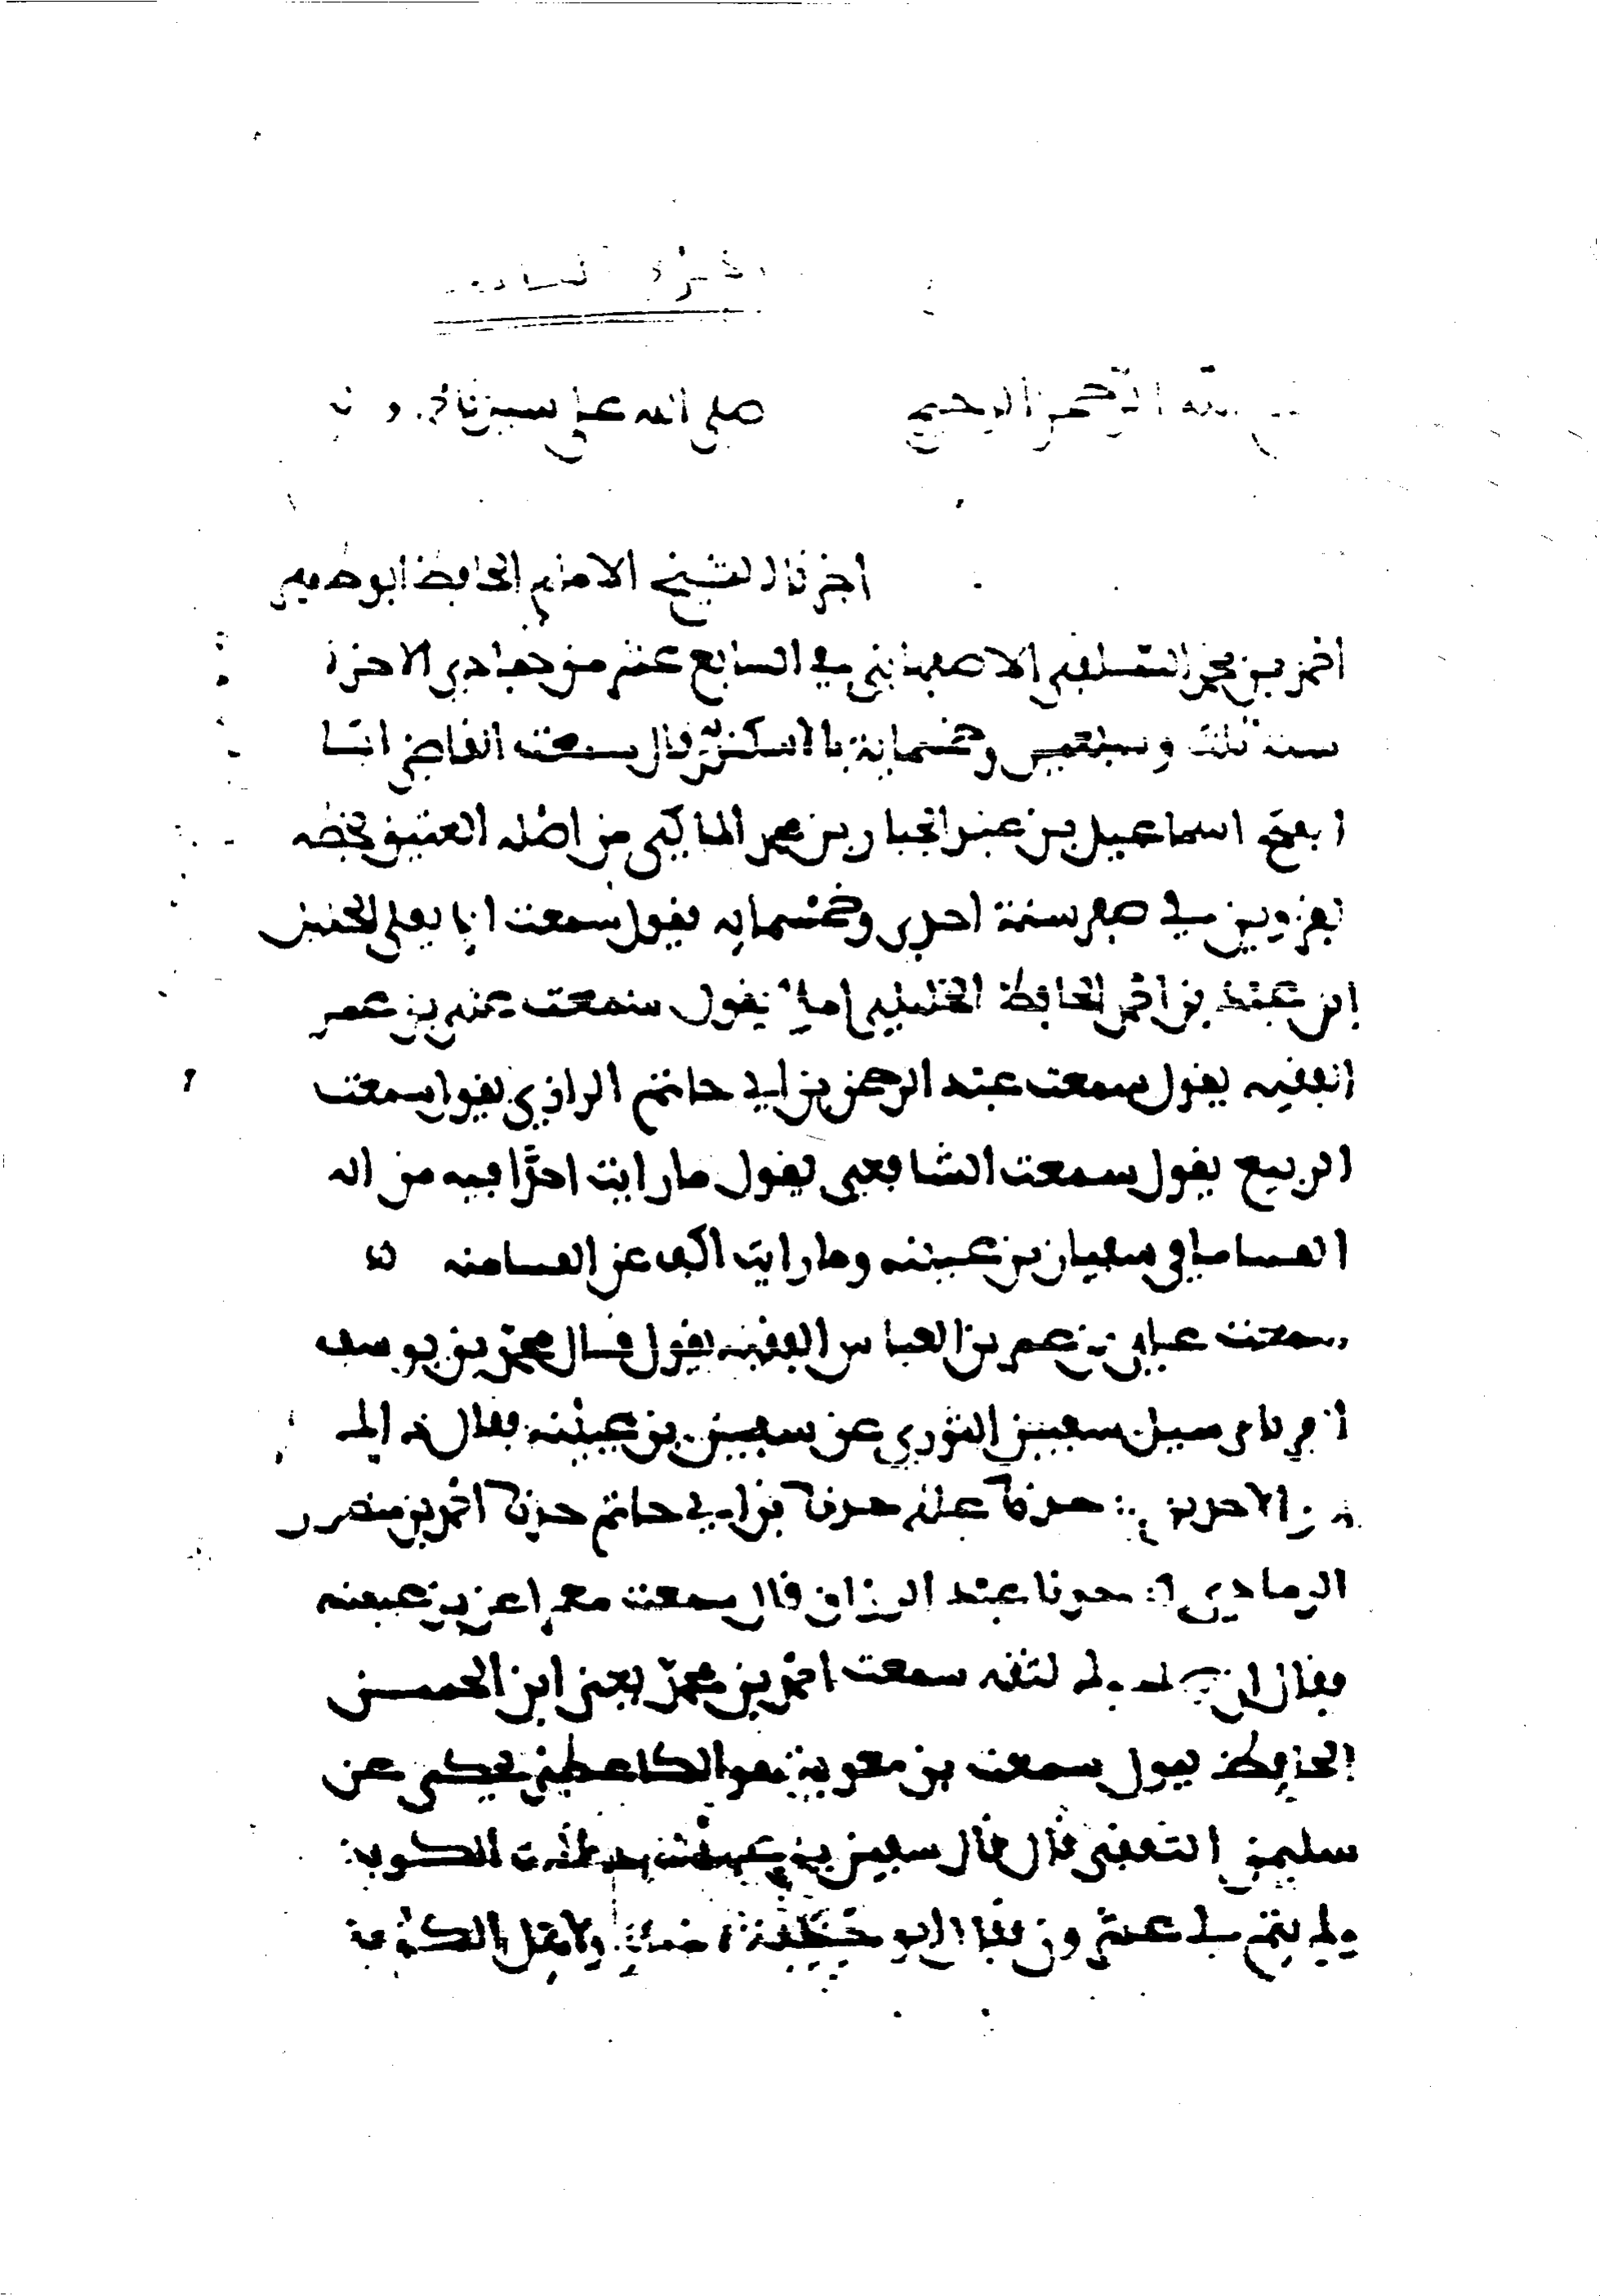 الجزء السادس
بسم الله الرحمن الرحيم صلى الله على سيدنا محمد و
اخبرنا الشيخ الامام الحافظ ابو طاهر
احمد بن محمد السلفي الاصبهاني في السابع عشر من جمادي الاخرة
سنة ثلث وسبعين وخمسماية بالاسكندرية قال سمعت القاضي ابا
الفتح اسماعيل بن عبد الجبار بن محمد المالكي من اصله العتيق بخطه
بقزوين في صفر سنة احدى وخمسماية يقول سمعت ابا يعلى الخليل
ابن عبد الله بن احمد الحافظ الخليلي املا يقول سمعت علي بن عمر
الفقيه يقول سمعت عبد الرحمن بن ابي حاتم الرازي يقول سمعت
الربيع يقول سمعت الشافعي يقول ما رايت احدا فيه من اله
الفتيا ما في سفيان بن عيينه وما رايت اكف عن الفتيا منه
سمعت علي بن عمر بن العباس الفقيه يقول قال محمد بن يوسف
الفريابي سيل سفين الثوري عن سفين بن عيينه فقال ذ الـ
الاحدين حدثنا علي حدثنا بن ابي حاتم حدثنا احمد بن منصور
الرمادي حدثنا عبد الرزاق قال سمعت معمرا عن بن عيينه
فقال لثقه سمعت احمد بن محمد يعني ابن الحسين
الحافظ يقول سمعت بن معوية هو الكاغدي يحكي عن
سليمن قال قال سفين بن عيينه دخلت الكوفة
ولم يتم لي عشرون فقال ابو حنيفة لاهل الكوفة